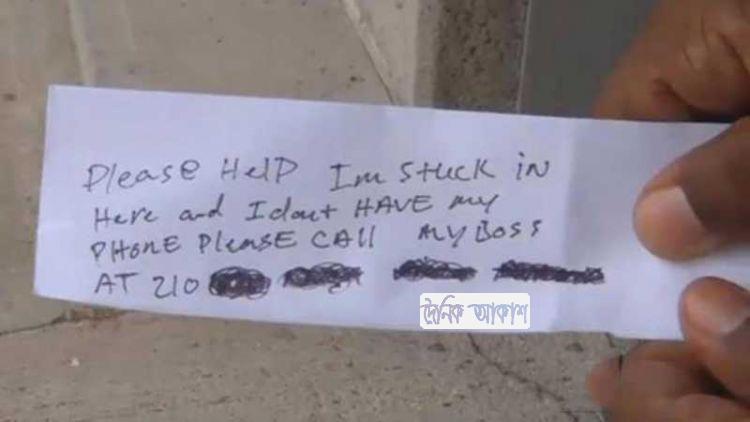 Please Help Im stuck in
Here and I dont HAVE my
PHONE Please CAll MY Boss
AT 210
দৈনিক আকাশ